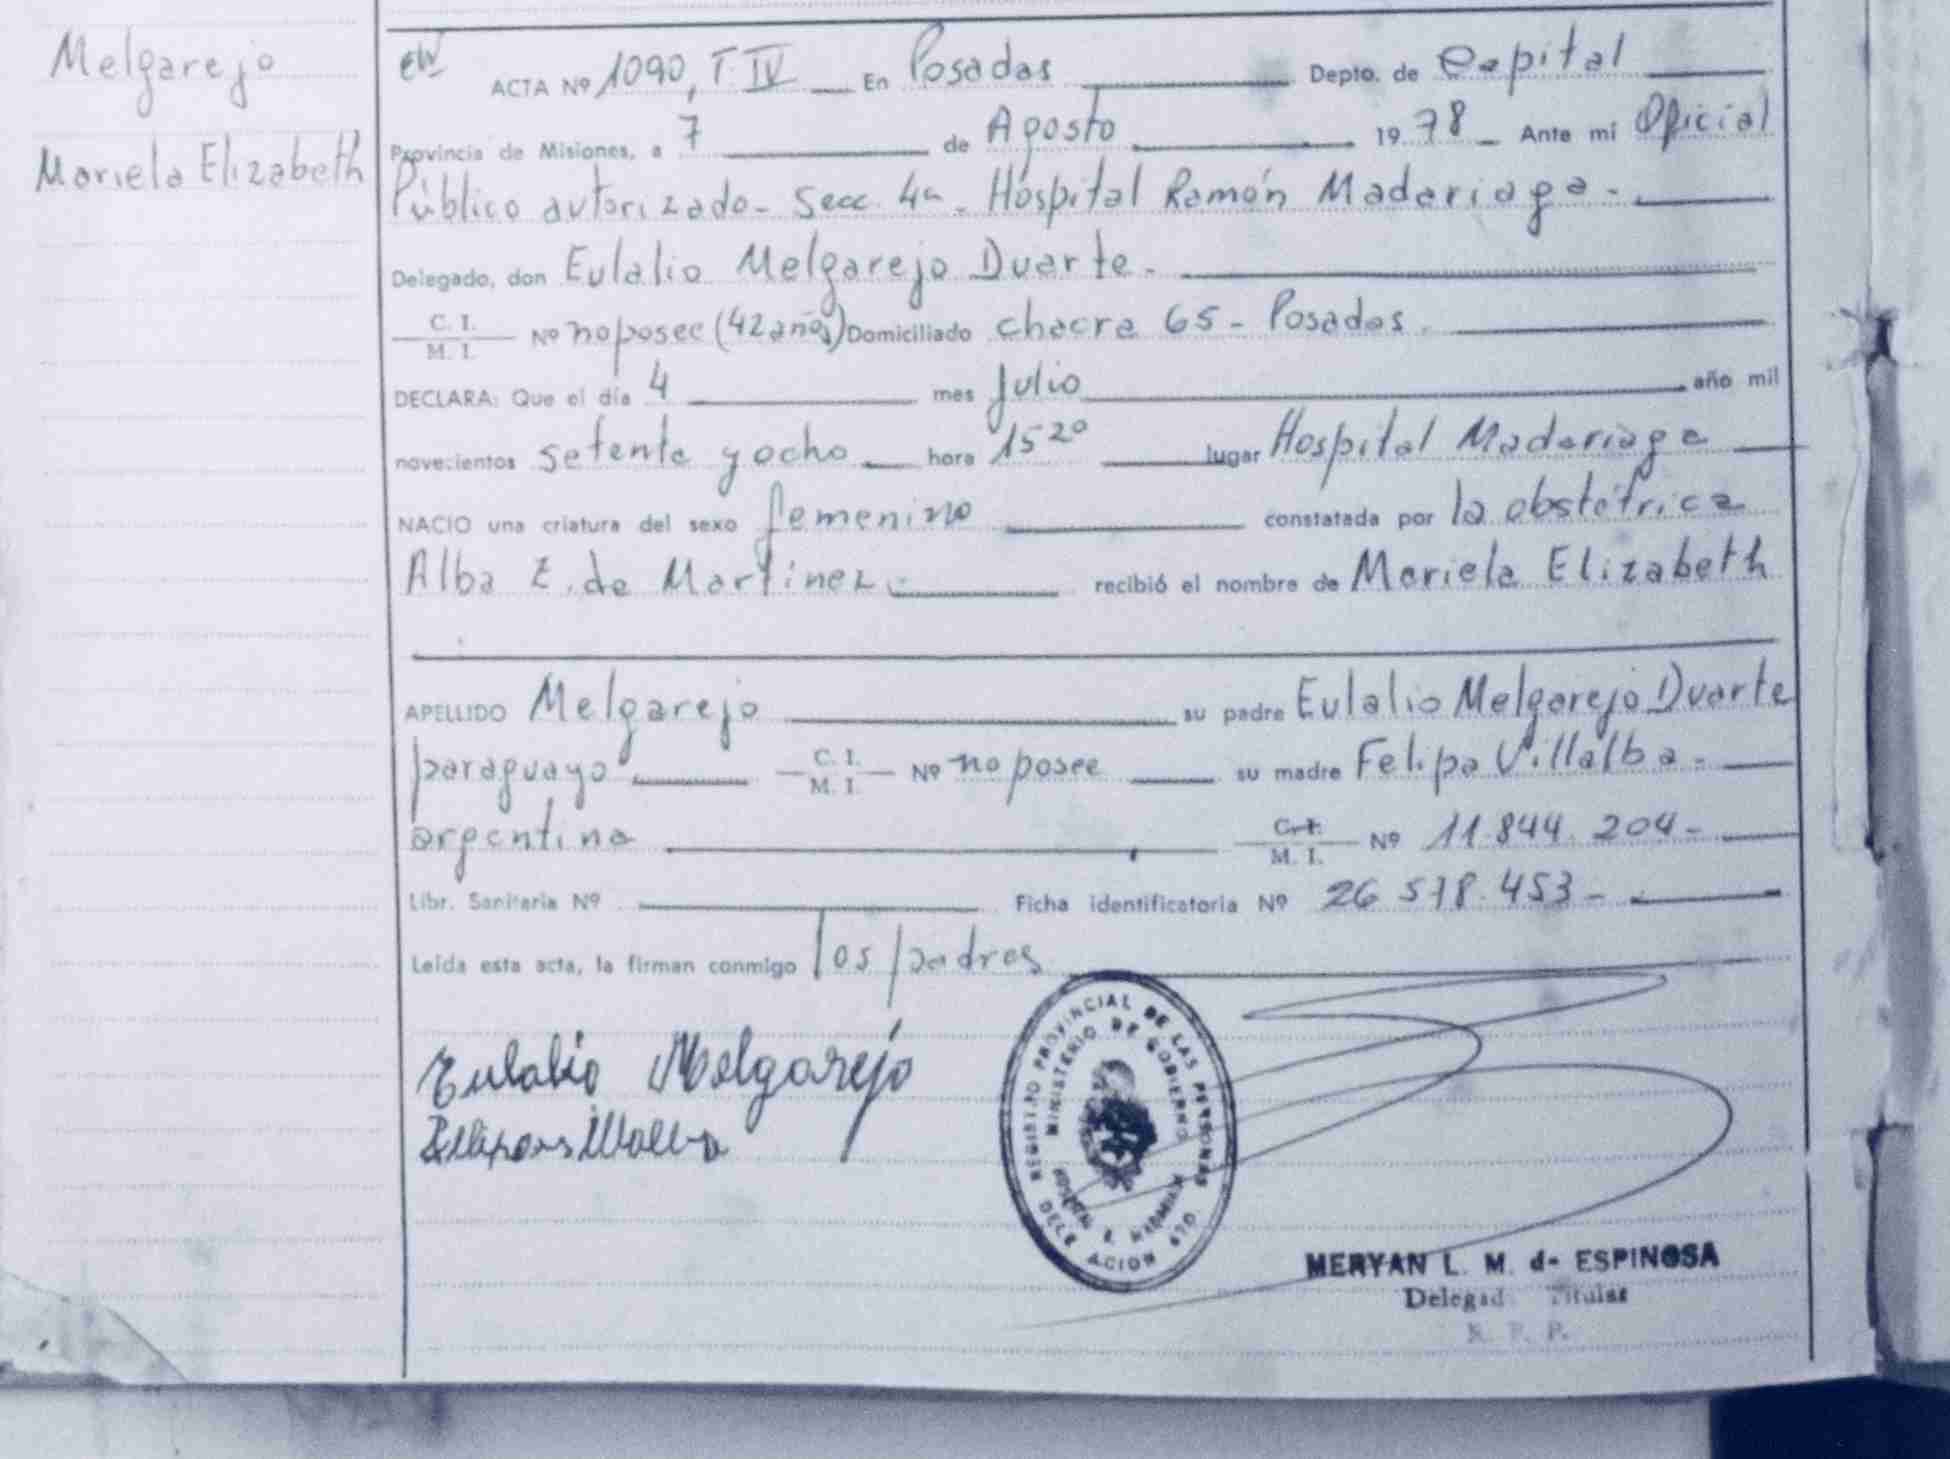 Melgarejo
Mariela Elizabeth
ACTA Nº 1090, T. IV En Posadas Depto. de Capital
Provincia de Misiones, a 7 de Agosto 1978 Ante mi Oficial
Público autorizado - Secc. 4a - Hospital Ramón Madariaga -
Delegado, don Eulalio Melgarejo Duarte -
C. I. / M. I. Nº no posee (42 años) Domiciliado chacra 65 - Posadas
DECLARA: Que el día 4 mes Julio año mil
novecientos setenta y ocho hora 15 20 lugar Hospital Madariaga
NACIO una criatura del sexo femenino constatada por la obstétrica
Alba E. de Martinez - recibió el nombre de Mariela Elizabeth
APELLIDO Melgarejo su padre Eulalio Melgarejo Duarte
paraguayo C. I. / M. I. Nº no posee su madre Felipa Villalba -
argentina C. I. / M. I. Nº 11.844.204 -
Libr. Sanitaria Nº Ficha identificatoria Nº 26.518.453 -
Leída esta acta, la firman conmigo los padres
Eulalio Melgarejo
REGISTRO PROVINCIAL DE LAS PERSONAS
MINISTERIO DE GOBIERNO
HOSPITAL R. MADARIAGA
DELEGACION 4TO
MERYAN L. M. de ESPINOSA
Delegad Titular
R. P. P.